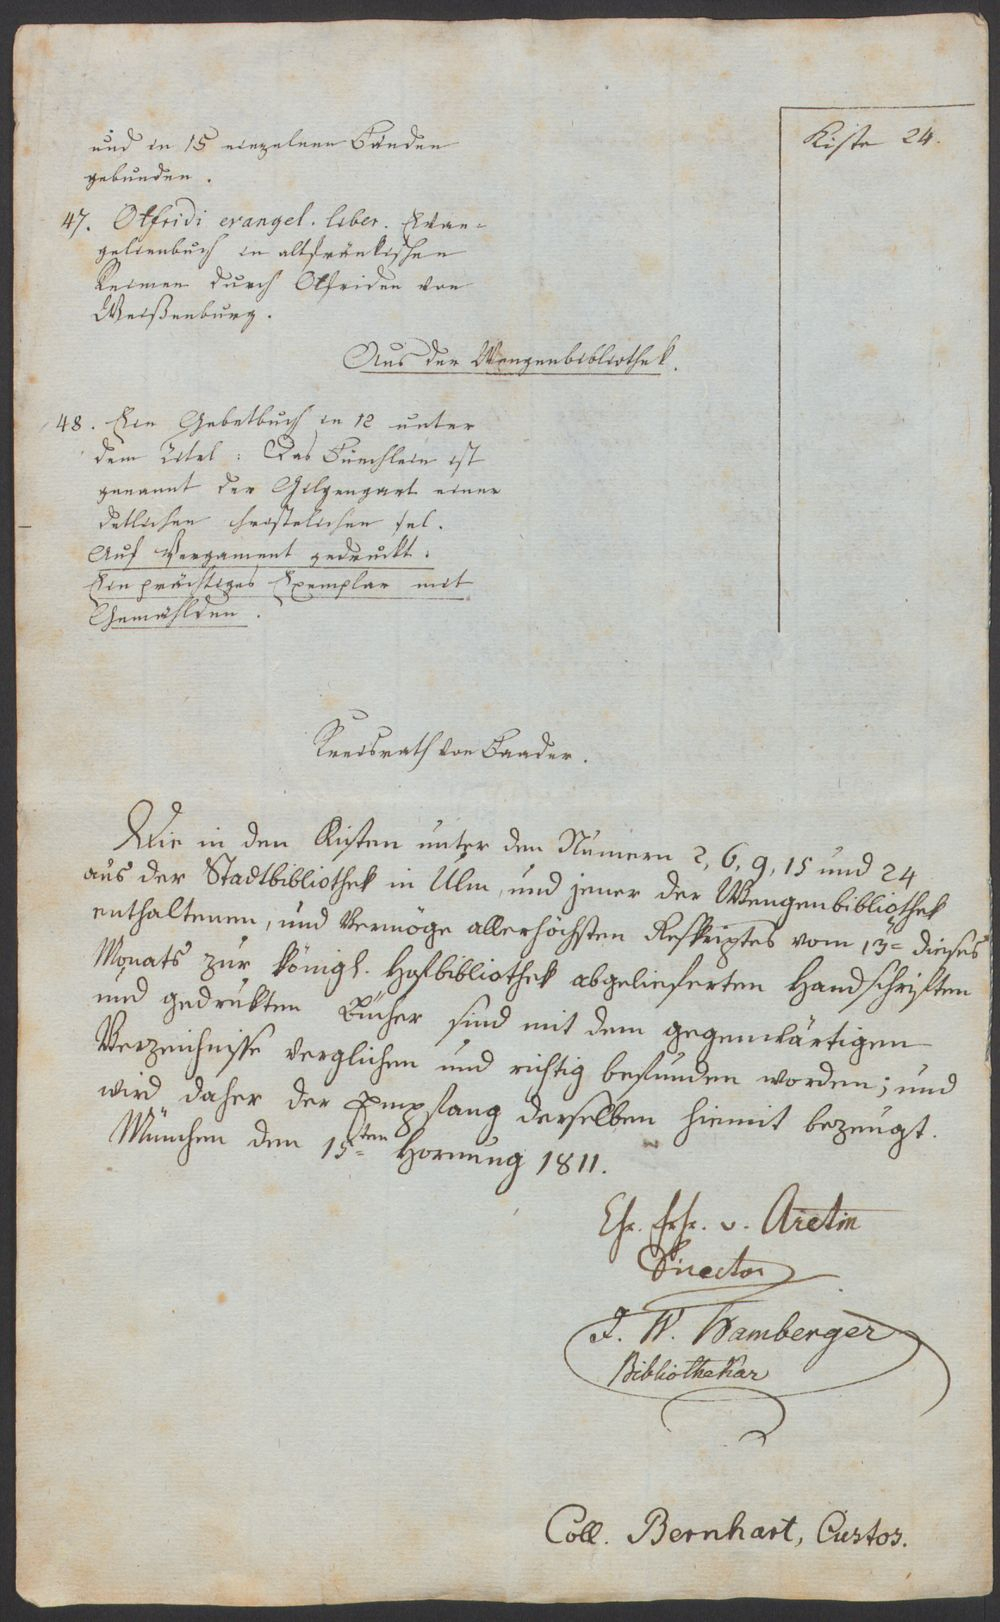 Kiste 24.
und in 15 einzelnen Bänden
gebunden.
47. Otfridi evangel. liber. Evan-
gelienbuch in altfränkischen
Reimen durch Otfriden von
Weißenburg.
Aus der Wengenbibliothek.
48. Ein Gebetbuch in 12 unter
dem Titel: Das Buechlein ist
genannt der Gilgengart einer
ietlichen christelichen sel.
Auf Pergament gedruckt.
Ein prächtiges Exemplar mit
Gemählden.
Kreisrath von Baader.
Die in den Kisten unter den Numern 2, 6, 9, 15 und 24
aus der Stadtbibliothek in Ulm, und jener der Wengenbibliothek
enthaltenen, und vermöge allerhöchsten Reskriptes vom 13= dieses
Monats zur königl. Hofbibliothek abgelieferten Handschriften
und gedrukten Bücher sind mit dem gegenwärtigen
Verzeichnisse verglichen und richtig befunden worden; und
wird daher der Empfang derselben hiemit bezeugt.
München den 15ten Hornung 1811.
Chr. Frhr. v. Aretin
Director
J. W. Hamberger
Bibliothekar
Coll. Bernhart, Custos.